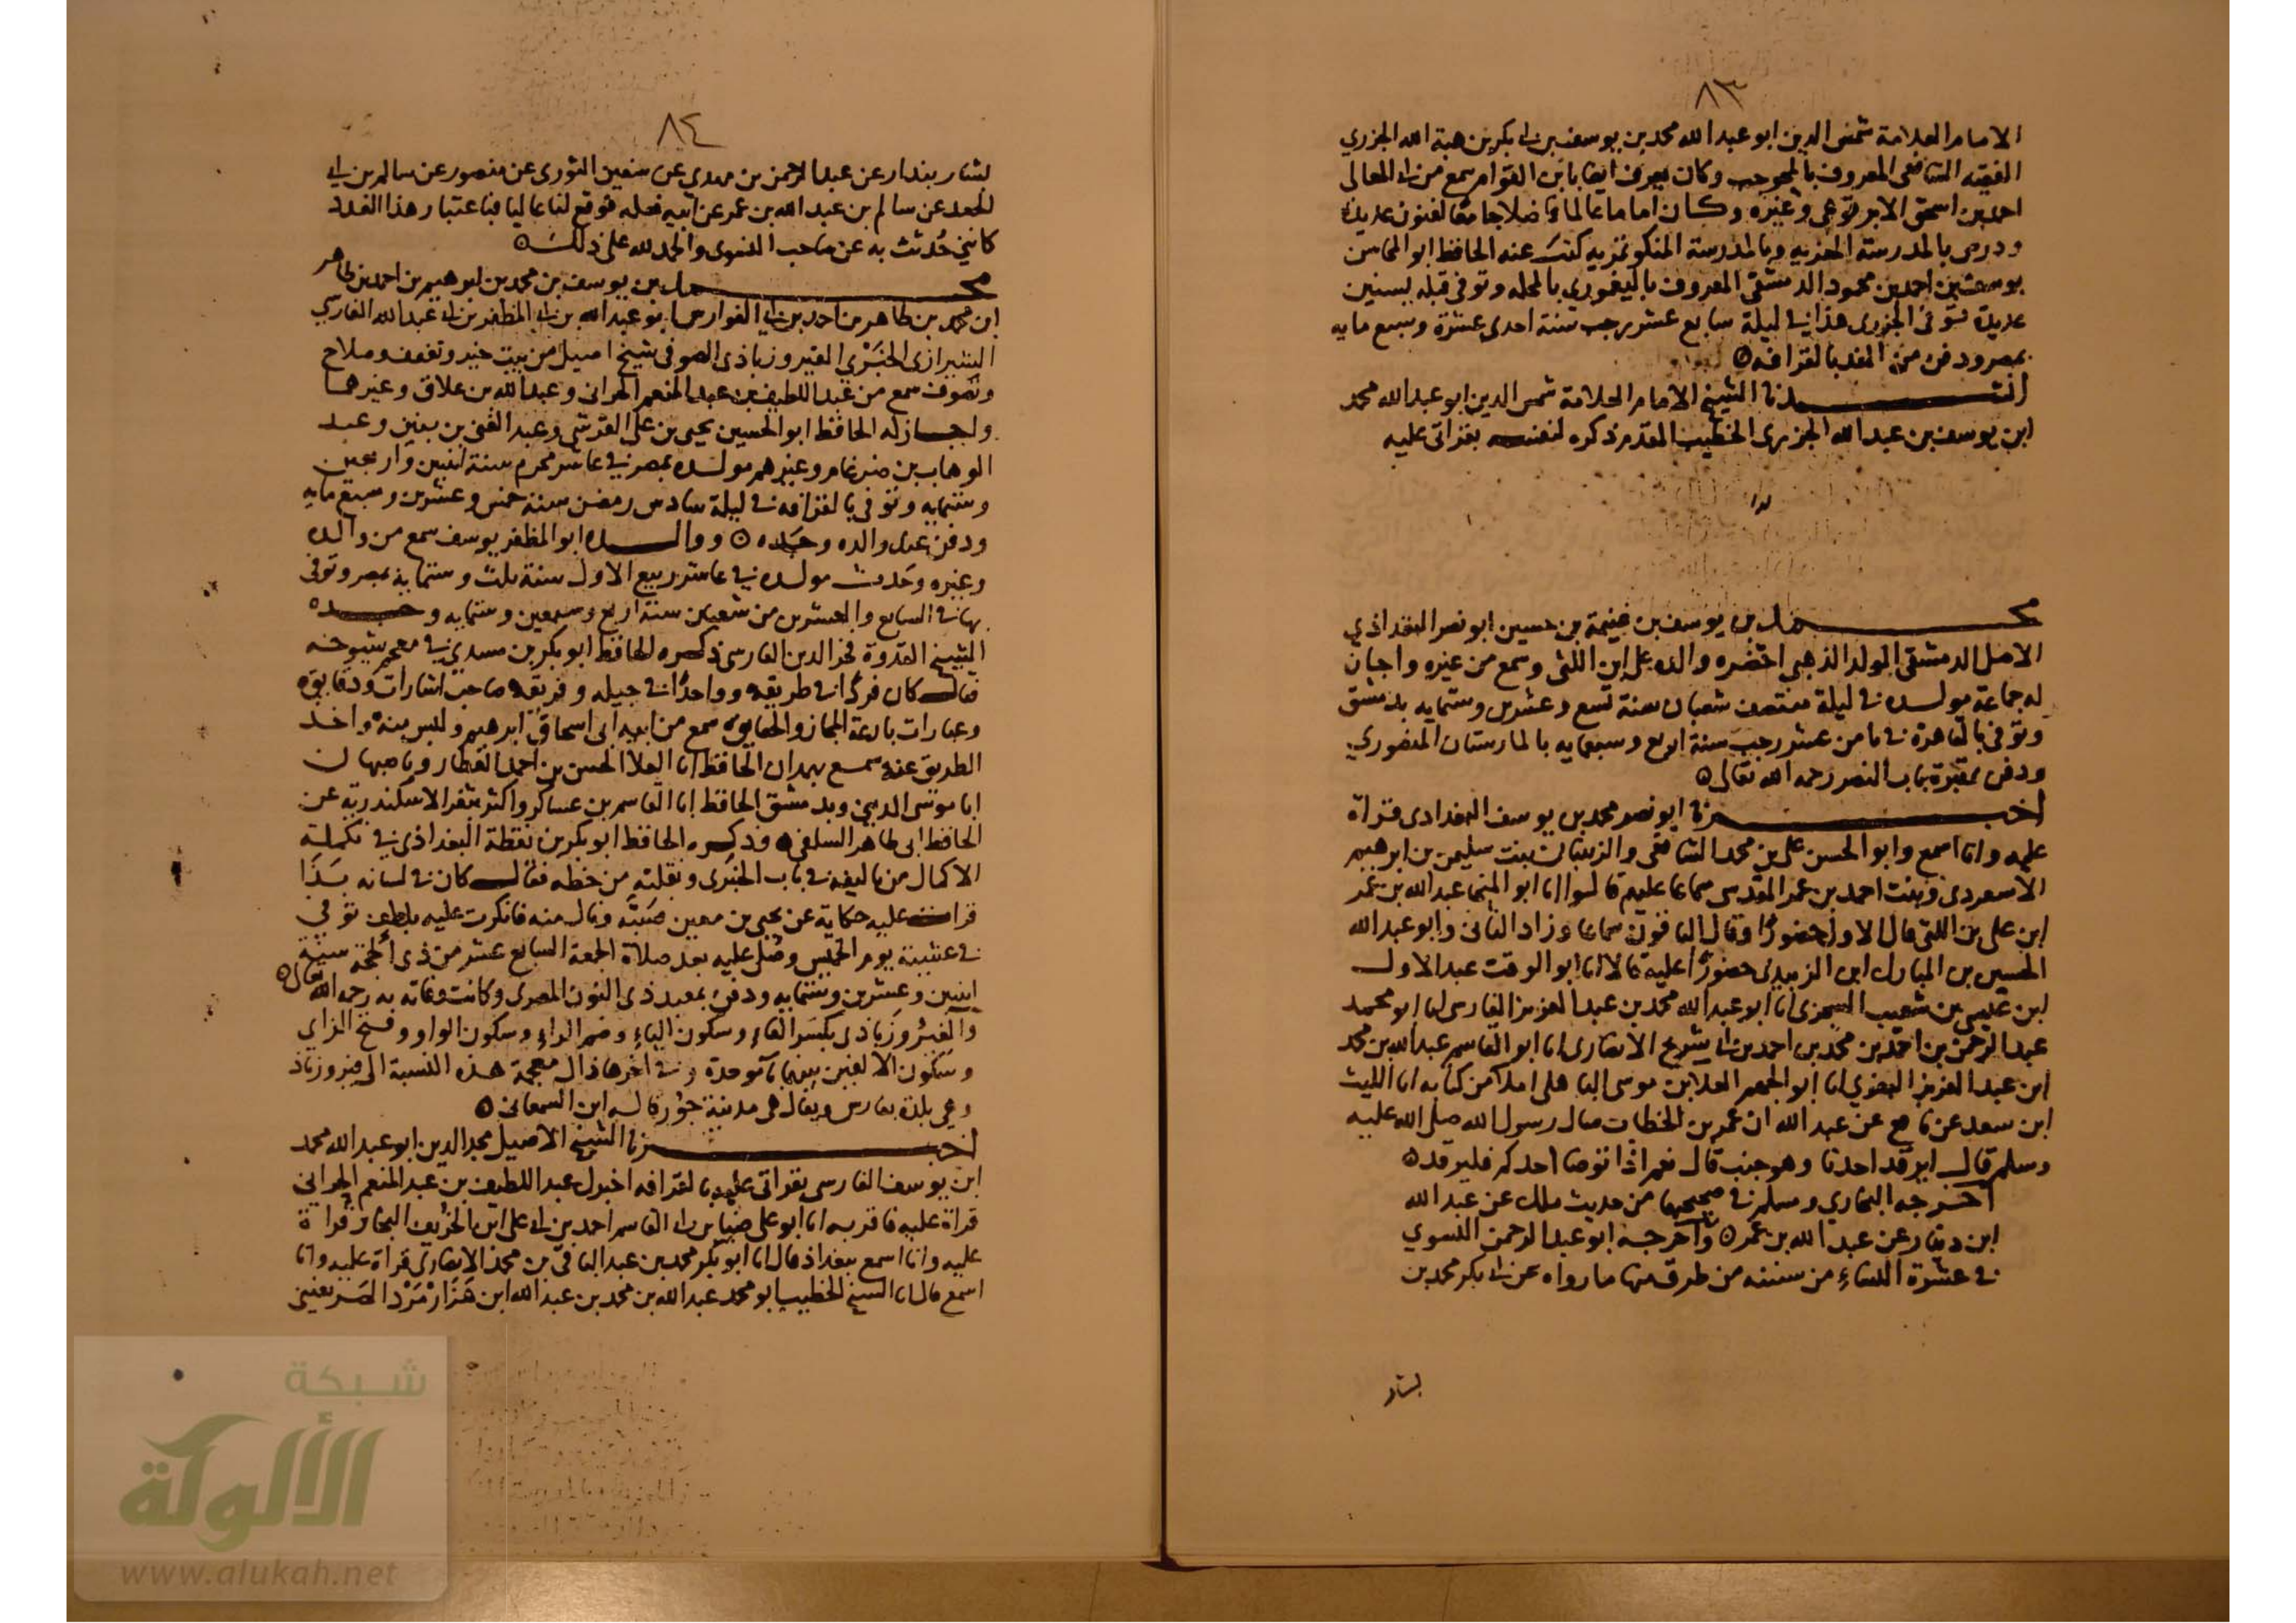 ٨٣
الامام العلامة شمس الدين ابو عبد الله محمد بن يوسف بن ابي بكر بن هبة الله الجزري
الفقيه الشافعي المعروف بالمحوجب وكان يعرف ايضا بابن القوام سمع من ابي المعالي
احمد بن اسحق الابرقوهي وغيره وكان اماما عالما فاضلا جامعا لفنون عديدة
ودرس بالمدرسة المعزيه وبالمدرسة المنكوتمريه كتب عنه الحافظ ابو المحاسن
يوسف بن احمد بن محمود الدمشقي المعروف باليغموري بالمحله وتوفي قبله بسنين
عديدة توفي الجزري هذا في ليلة سابع عشر رجب سنة احدى عشرة وسبع مايه
بمصر ودفن من الغد بالقرافه ٥
انشدنا الشيخ الامام العلامة شمس الدين ابو عبد الله محمد
ابن يوسف بن عبد الله الجزري الخطيب المقدم ذكره لنفسه بقراتي عليه
محمد بن يوسف بن غنيمة بن حسين ابو نصر البغداذي
الاصل الدمشقي المولد الذهبي احضره والده على ابن اللتي وسمع من غيره واجاز
له جماعة مولده في ليلة منتصف شعبان سنة تسع وعشرين وستمايه بدمشق
وتوفي بالقاهرة في ثامن عشر رجب سنة اربع وسبعمايه بالمارستان المنصوري
ودفن بمقبرة باب النصر رحمه الله تعالى ٥
اخبرنا ابو نصر محمد بن يوسف البغدادي قراة
عليه وانا اسمع وابو الحسن علي بن محمد الشافعي والزينبان بنت سليمن بن ابرهيم
الاسعردي وبنت احمد بن عمر المقدسي سماعا عليهم قالوا انا ابو المنجا عبد الله بن عمر
ابن علي بن اللتي قال الاول حضورا وقال الباقون سماعا وزاد الثاني وابو عبد الله
الحسين بن المبارك ابن الزبيدي حضورا عليه قالا انا ابو الوقت عبد الاول
ابن عيسى بن شعيب السجزي انا ابو عبد الله محمد بن عبد العزيز الفارسي انا ابو محمد
عبد الرحمن بن احمد بن محمد بن احمد بن ابي شريح الانصاري انا ابو القاسم عبد الله بن محمد
ابن عبد العزيز البغوي انا ابو الجهم العلا بن موسى الباهلي املا من كتابه انا الليث
ابن سعد عن نافع عن عبد الله ان عمر بن الخطاب سال رسول الله صلى الله عليه
وسلم قال ايرقد احدنا وهو جنب قال نعم اذا توضا احدكم فليرقد ٥
اخرجه البخاري ومسلم في صحيحيهما من حديث ملك عن عبد الله
ابن دينار عن عبد الله بن عمر ٥ واخرجه ابو عبد الرحمن النسوي
في عشرة النساء من سننه من طرق منها ما رواه عن ابي بكر محمد بن
بشار
٨٤
بشار بندار عن عبد الرحمن بن مهدي عن سفين الثوري عن منصور عن سالم بن ابي
الجعد عن سالم بن عبد الله بن عمر عن ابيه فعله فوقع لنا عاليا فباعتبار هذا العدد
كانني حُدثت به عن صاحب النسوي والحمد لله على ذلك ٥
محمد بن يوسف بن محمد بن ابرهيم بن احمد بن طاهر
ابن محمد بن طاهر بن احمد بن ابي الفوارس ابو عبد الله بن ابي المظفر بن ابي عبد الله الفارسي
الشيرازي الخبري الفيروزباذي الصوفي شيخ اصيل من بيت خير وتعفف وصلاح
وتصوف سمع من عبد اللطيف بن عبد المنعم الحراني وعبد الله بن علاق وغيرهما
واجاز له الحافظ ابو الحسين يحيى بن علي القرشي وعبد الغني بن بنين وعبد
الوهاب بن ضرغام وغيرهم مولده بمصر في عاشر محرم سنة اثنين واربعين
وستمايه وتوفي بالقرافه في ليلة سادس رمضن سنة خمس وعشرين وسبع مايه
ودفن عند والده وجده ٥ ووالده ابو المظفر يوسف سمع من والده
وغيره وحدث مولده في عاشر ربيع الاول سنة ثلث وستماية بمصر وتوفي
بها في السابع والعشرين من شعبان سنة اربع وسبعين وستمايه وجده
الشيخ القدوة فخر الدين الفارسي ذكره الحافظ ابو بكر بن مسدي في معجم شيوخه
فقال كان فردا في طريقه وواحدا في جيله وفريقه صاحب اشارات ودقايق
وعبارات بارعة المجاز والحقايق سمع من ابيه ابي اسحاق ابرهيم ولبس منه واخذ
الطريق عنه سمع بهمدان الحافظ ابا العلا الحسن بن احمد العطار وباصبهان
ابا موسى المديني وبدمشق الحافظ ابا القاسم بن عساكر واكثر بثغر الاسكندرية عن
الحافظ ابي طاهر السلفي ٥ وذكره الحافظ ابو بكر بن نقطة البغداذي في تكملة
الاكمال من تاليفه في باب الخبري ونقلته من خطه فقال كان في لسانه بَذَا
قرات عليه حكاية عن يحيى بن معين فسبَّه ونال منه فانكرت عليه بلطف توفي
في عشية يوم الخميس وصُلي عليه بعد صلاة الجمعة السابع عشر من ذي الحجة سنة
اثنين وعشرين وستمايه ودفن بمعبد ذي النون المصري وكانت وفاته به رحمه الله تعالى ٥
والفيروزباذي بكسر الفاء وسكون الياء وضم الراء وسكون الواو وفتح الزاي
وسكون الالفين بينهما باء موحدة وفي اخرها ذال معجمة هذه النسبة الى فيروزباذ
وهي بلدة بفارس ويقال هي مدينة جور قاله ابن السمعاني ٥
اخبرنا الشيخ الاصيل مجد الدين ابو عبد الله محمد
ابن يوسف الفارسي بقراتي عليه بالقرافه اخبرك عبد اللطيف بن عبد المنعم الحراني
قراة عليه فاقر به انا ابو علي ضيا بن ابي القاسم احمد بن ابي علي ابن الخريف النجار قراة
عليه وانا اسمع ببغداذ قال انا ابو بكر محمد بن عبد الباقي بن محمد الانصاري قراة عليه وانا
اسمع قال انا الشيخ الخطيب ابو محمد عبد الله بن محمد بن عبد الله ابن هَزَارْمَرْد الصريفيني
شبكة
الألوكة
www.alukah.net